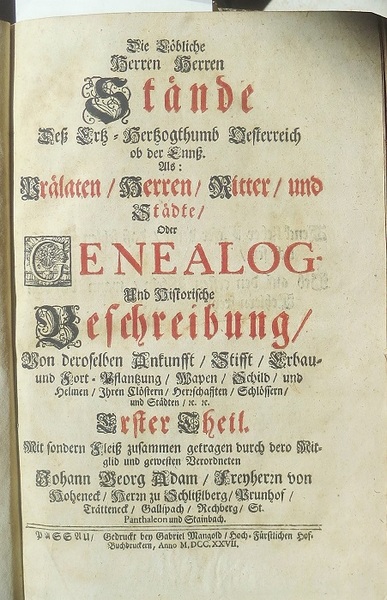 Die Löbliche
Herren Herren
Stände
Deß Ertz-Hertzogthumb Oesterreich
ob der Ennß.
Als:
Prälaten / Herren / Ritter / und
Städte /
Oder
GENEALOG.
Und Historische
Beschreibung /
Von deroselben Ankunfft / Stifft / Erbau-
und Fort-Pflantzung / Wapen / Schild / und
Helmen / Ihren Clöstern / Herrschafften / Schlössern /
und Städten / ꝛc. ꝛc.
Erster Theil.
Mit sondern Fleiß zusammen getragen durch dero Mit-
glid und gewesten Verordneten
Johann Georg Adam / Freyherrn von
Hoheneck / Herrn zu Schlißlberg / Prunhof /
Trätteneck / Gallspach / Rechberg / St.
Panthaleon und Stainbach.
PASSAU / Gedruckt bey Gabriel Mangold / Hoch-Fürstlichen Hof-
Buchdruckern, Anno M.DCC.XXVII.